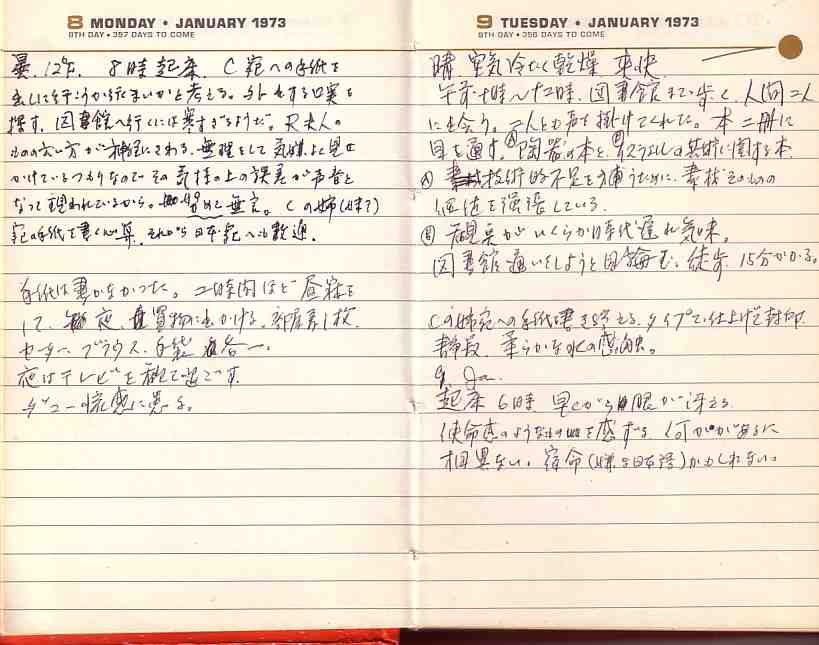 8 MONDAY • JANUARY 1973
8TH DAY • 357 DAYS TO COME
曇. 12°F. 8時起床. C宛への手紙を
出しに行こうか行くまいかと考える。外出する口実を
探す. 図書館へ行くには寒すぎるようだ。R夫人の
ものの云い方が神経にさわる. 無理をして気嫌よく見せ
かけているつもりなのでその気持の上の誤差が声音と
なって現われているから. 努めて無言。Cの姉
宛の手紙を書く心算. それから日本宛へも数通.
手紙は書かなかった。二時間ほど昼寝を
して. 夜. 買物に出かける. 部屋着1枚.
セーター. ブラウス. 手袋 各一.
夜はテレビを観て過ごす.
9 TUESDAY • JANUARY 1973
9TH DAY • 356 DAYS TO COME
晴 空気冷たく乾燥 爽快
午前十時～十二時. 図書館まで歩く. 人間二人
に出会う。二人とも声を掛けてくれた. 本二冊に
目を通す. Ⓐ陶器の本と. Ⓑイスラエルの共姉に関する本.
Ⓐ 技術的不足を補うために. 素材そのもの
価値を強張している.
Ⓑ がいくらか時代遅れ気味.
図書館通いをしようと目論む. 徒歩. 15分かかる。
Cの姉宛への手紙書き終える. タイプで仕上げて封印.
静寂. 柔らかな
9. Ja.
起床 6時 早くから眼が冴える.
使命感のようなものを感ずる. 何かがあるに
相異ない. 宿命(嫌な日本語)かもしれない。